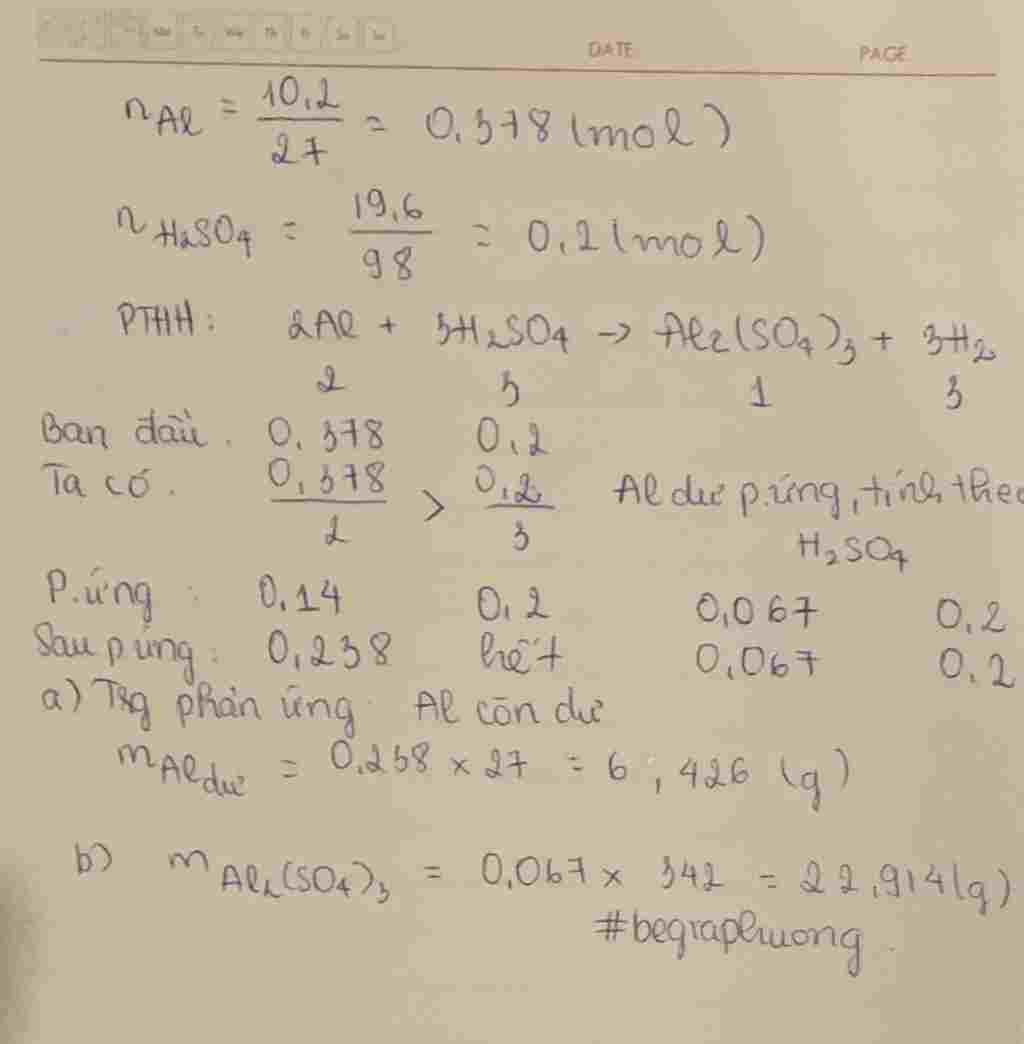 Mo Tu We Th Fr Sa Su
DATE PAGE
nAl = 10,2/27 = 0,378 (mol)
nH2SO4 = 19,6/98 = 0,2 (mol)
PTHH: 2Al + 3H2SO4 → Al2(SO4)3 + 3H2
2 3 1 3
Ban đầu. 0,378 0,2
Ta có. 0,378/2 > 0,2/3 Al dư p.ứng, tính theo
H2SO4
P.ứng : 0,14 0,2 0,067 0,2
Sau p ứng: 0,238 hết 0,067 0,2
a) Trg phản ứng Al còn dư
mAl dư = 0,238 × 27 = 6,426 (g)
b) mAl2(SO4)3 = 0,067 × 342 = 22,914 (g)
#begraphuong.